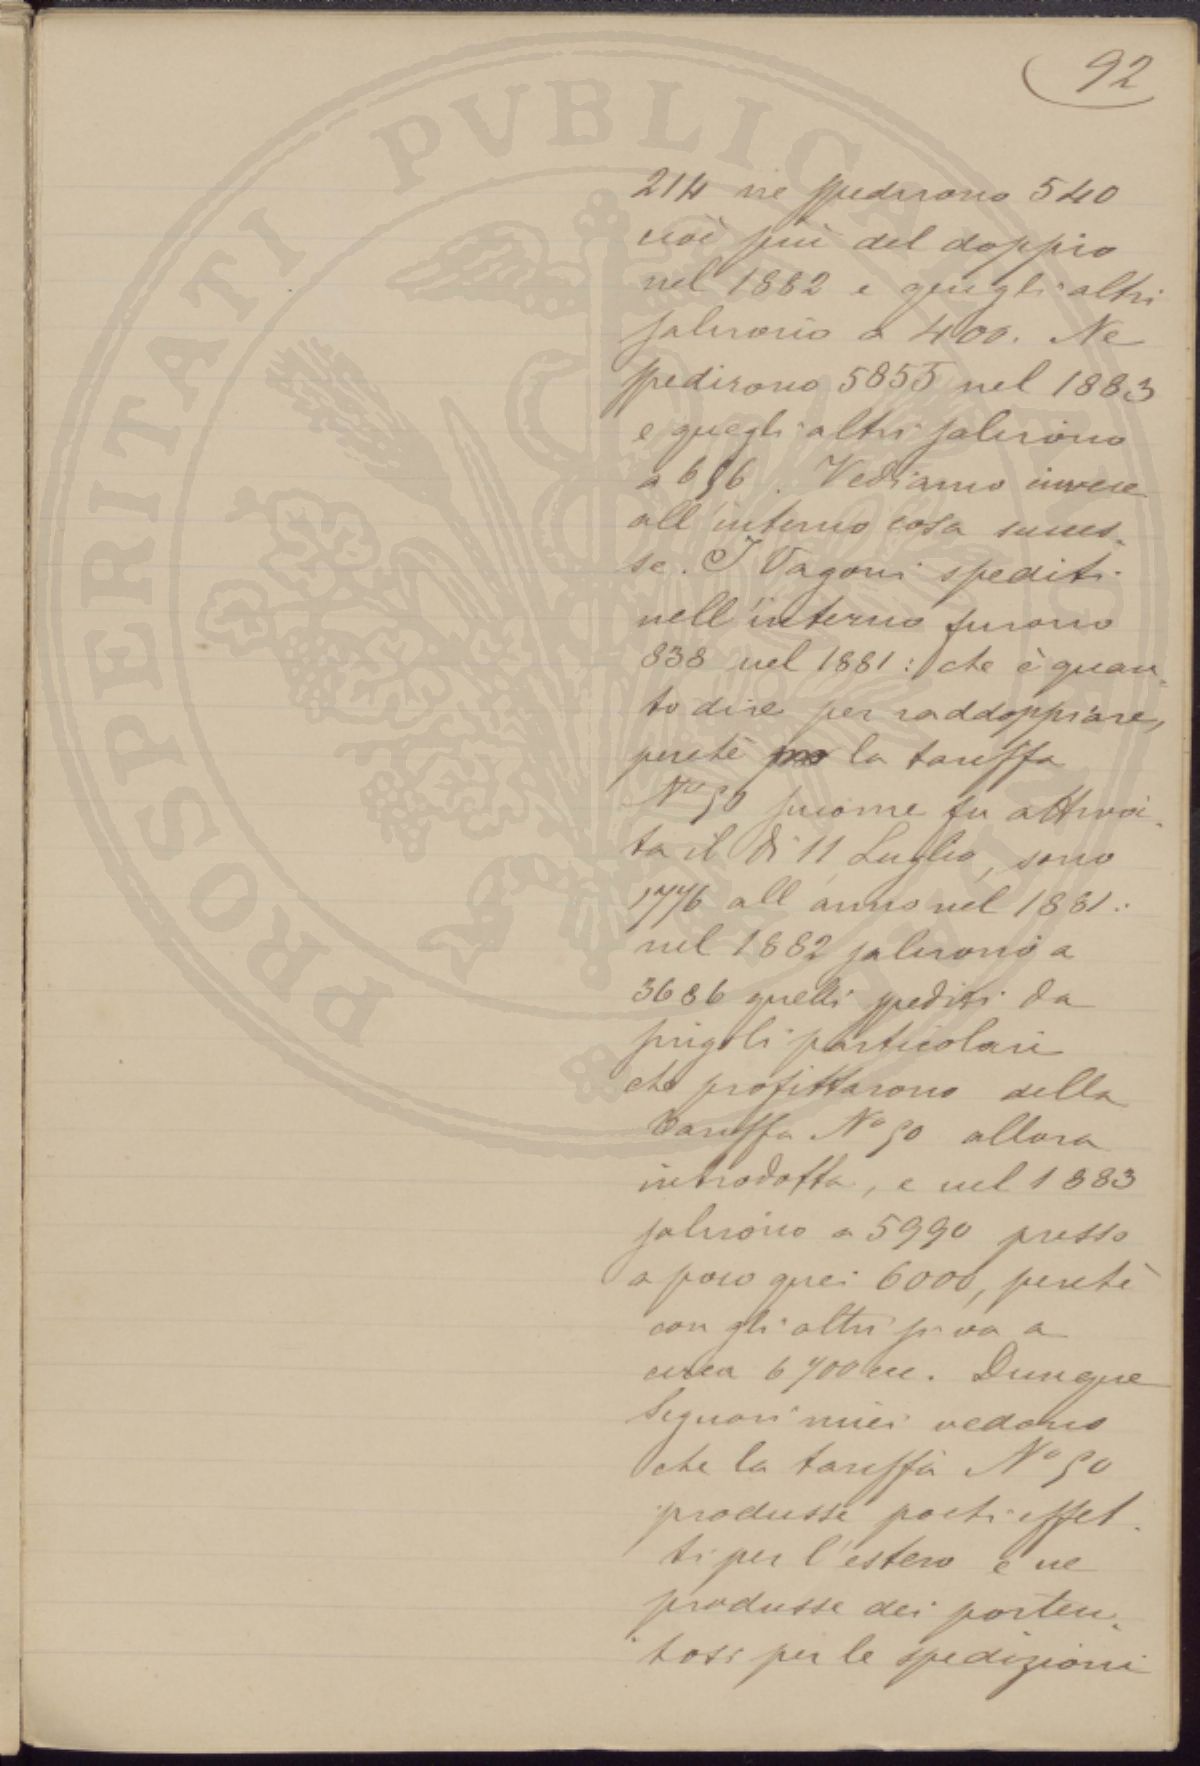 92
214 ne spedirono 540
cioè più del doppio
nel 1882 e quegli altri
salirono a 400. Ne
spedirono 5855 nel 1883
e quegli altri salirono
a 696. Vediamo invece
all'interno cosa succes-
se. I Vagoni spediti
nell'interno furono
838 nel 1881: che è quan-
to dire per raddoppiare,
perchè la tariffa
No 50 siccome fu attiva-
ta il dì 11 Luglio, sono
1776 all'anno nel 1881:
nel 1882 salirono a
3686 quelli spediti da
singoli particolari
che profittarono della
tariffa No 50 allora
introdotta, e nel 1883
salirono a 5990 presso
a poco quei 6000, perchè
con gli altri si va a
circa 6700. Dunque
Signori miei vedono
che la tariffa No 50
produsse pochi effet-
ti per l'estero e ne
produsse dei porten-
tosi per le spedizioni
PROSPERITATI PVBLICAE